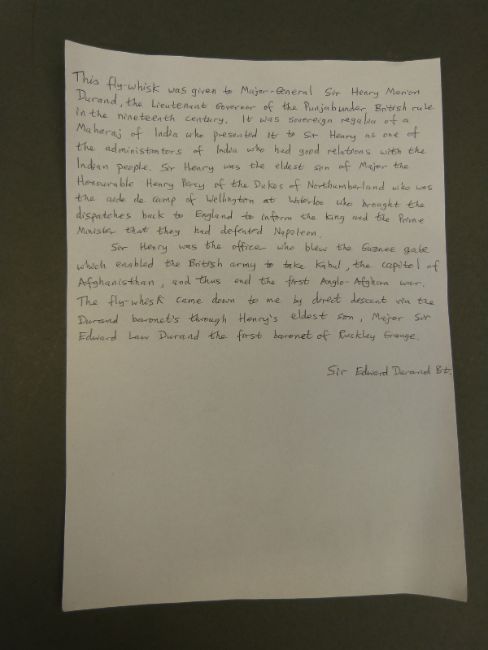 This fly-whisk was given to Major-General Sir Henry Marion
Durand, the Lieutenant Governor of the Punjab under British rule
in the nineteenth century. It was sovereign regalia of a
Maharaj of India who presented it to Sir Henry as one of
the administrators of India who had good relations with the
Indian people. Sir Henry was the eldest son of Major the
Honourable Henry Percy of the Dukes of Northumberland who was
the aide de camp of Wellington at Waterloo who brought the
dispatches back to England to inform the King and the Prime
Minister that they had defeated Napoleon.
Sir Henry was the officer who blew the Gaznee gate
which enabled the British army to take Kabul, the capitol of
Afghanisthan, and thus end the first Anglo-Afghan war.
The fly-whisk came down to me by direct descent via the
Durand baronet's through Henry's eldest son, Major Sir
Edward Law Durand the first baronet of Ruckley Grange.
Sir Edward Durand Bt.